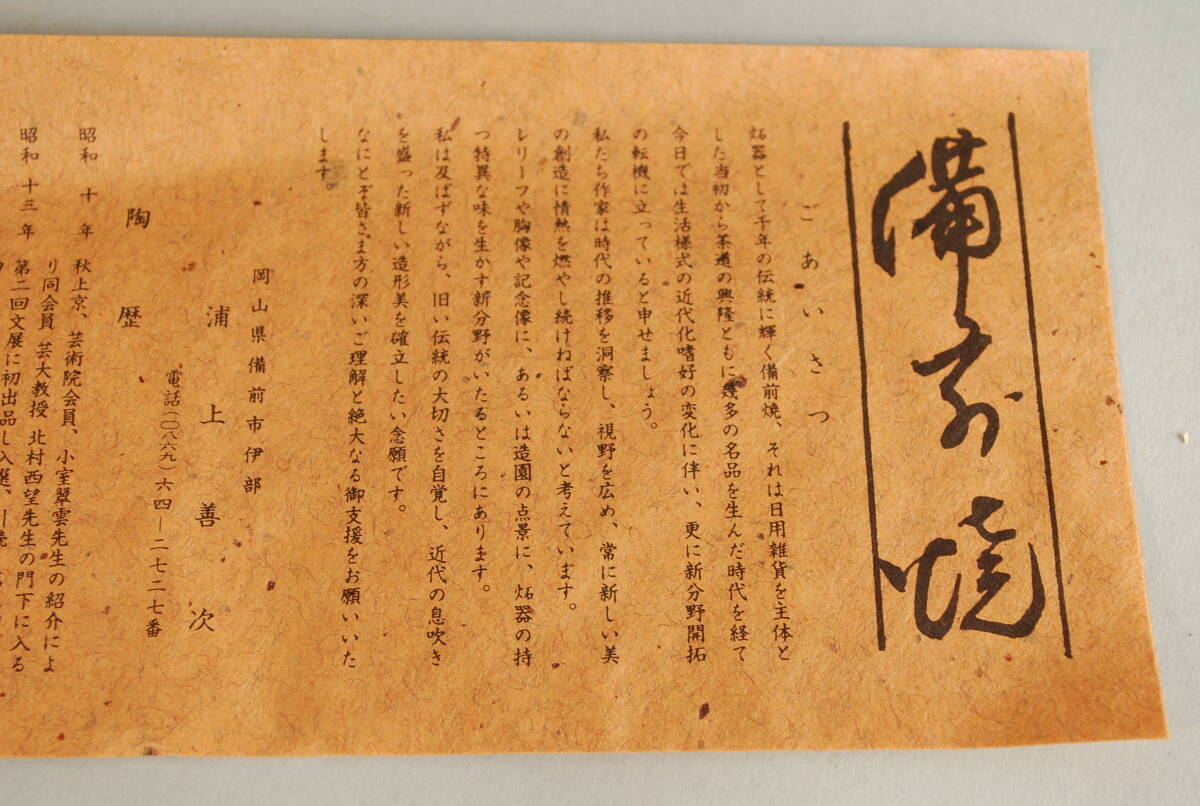 備前焼
ごあいさつ
炻器として千年の伝統に輝く備前焼、それは日用雑貨を主体と
した当初から茶道の興隆とともに幾多の名品を生んだ時代を経て
今日では生活様式の近代化嗜好の変化に伴い、更に新分野開拓
の転機に立っていると申せましょう。
私たち作家は時代の推移を洞察し、視野を広め、常に新しい美
の創造に情熱を燃やし続けねばならないと考えています。
レリーフや胸像や記念像に、あるいは造園の点景に、炻器の持
つ特異な味を生かす新分野がいたるところにあります。
私は及ばずながら、旧い伝統の大切さを自覚し、近代の息吹き
を盛った新しい造形美を確立したい念願です。
なにとぞ皆さま方の深いご理解と絶大なる御支援をお願いいた
します。
岡山県備前市伊部
浦上善次
電話(〇八六九)六四―二七二七番
陶歴
昭和十年 秋上京、芸術院会員、小室翠雲先生の紹介によ
り同会員 芸大教授 北村西望先生の門下に入る
昭和十三年 第二回文展に初出品し入選、引続